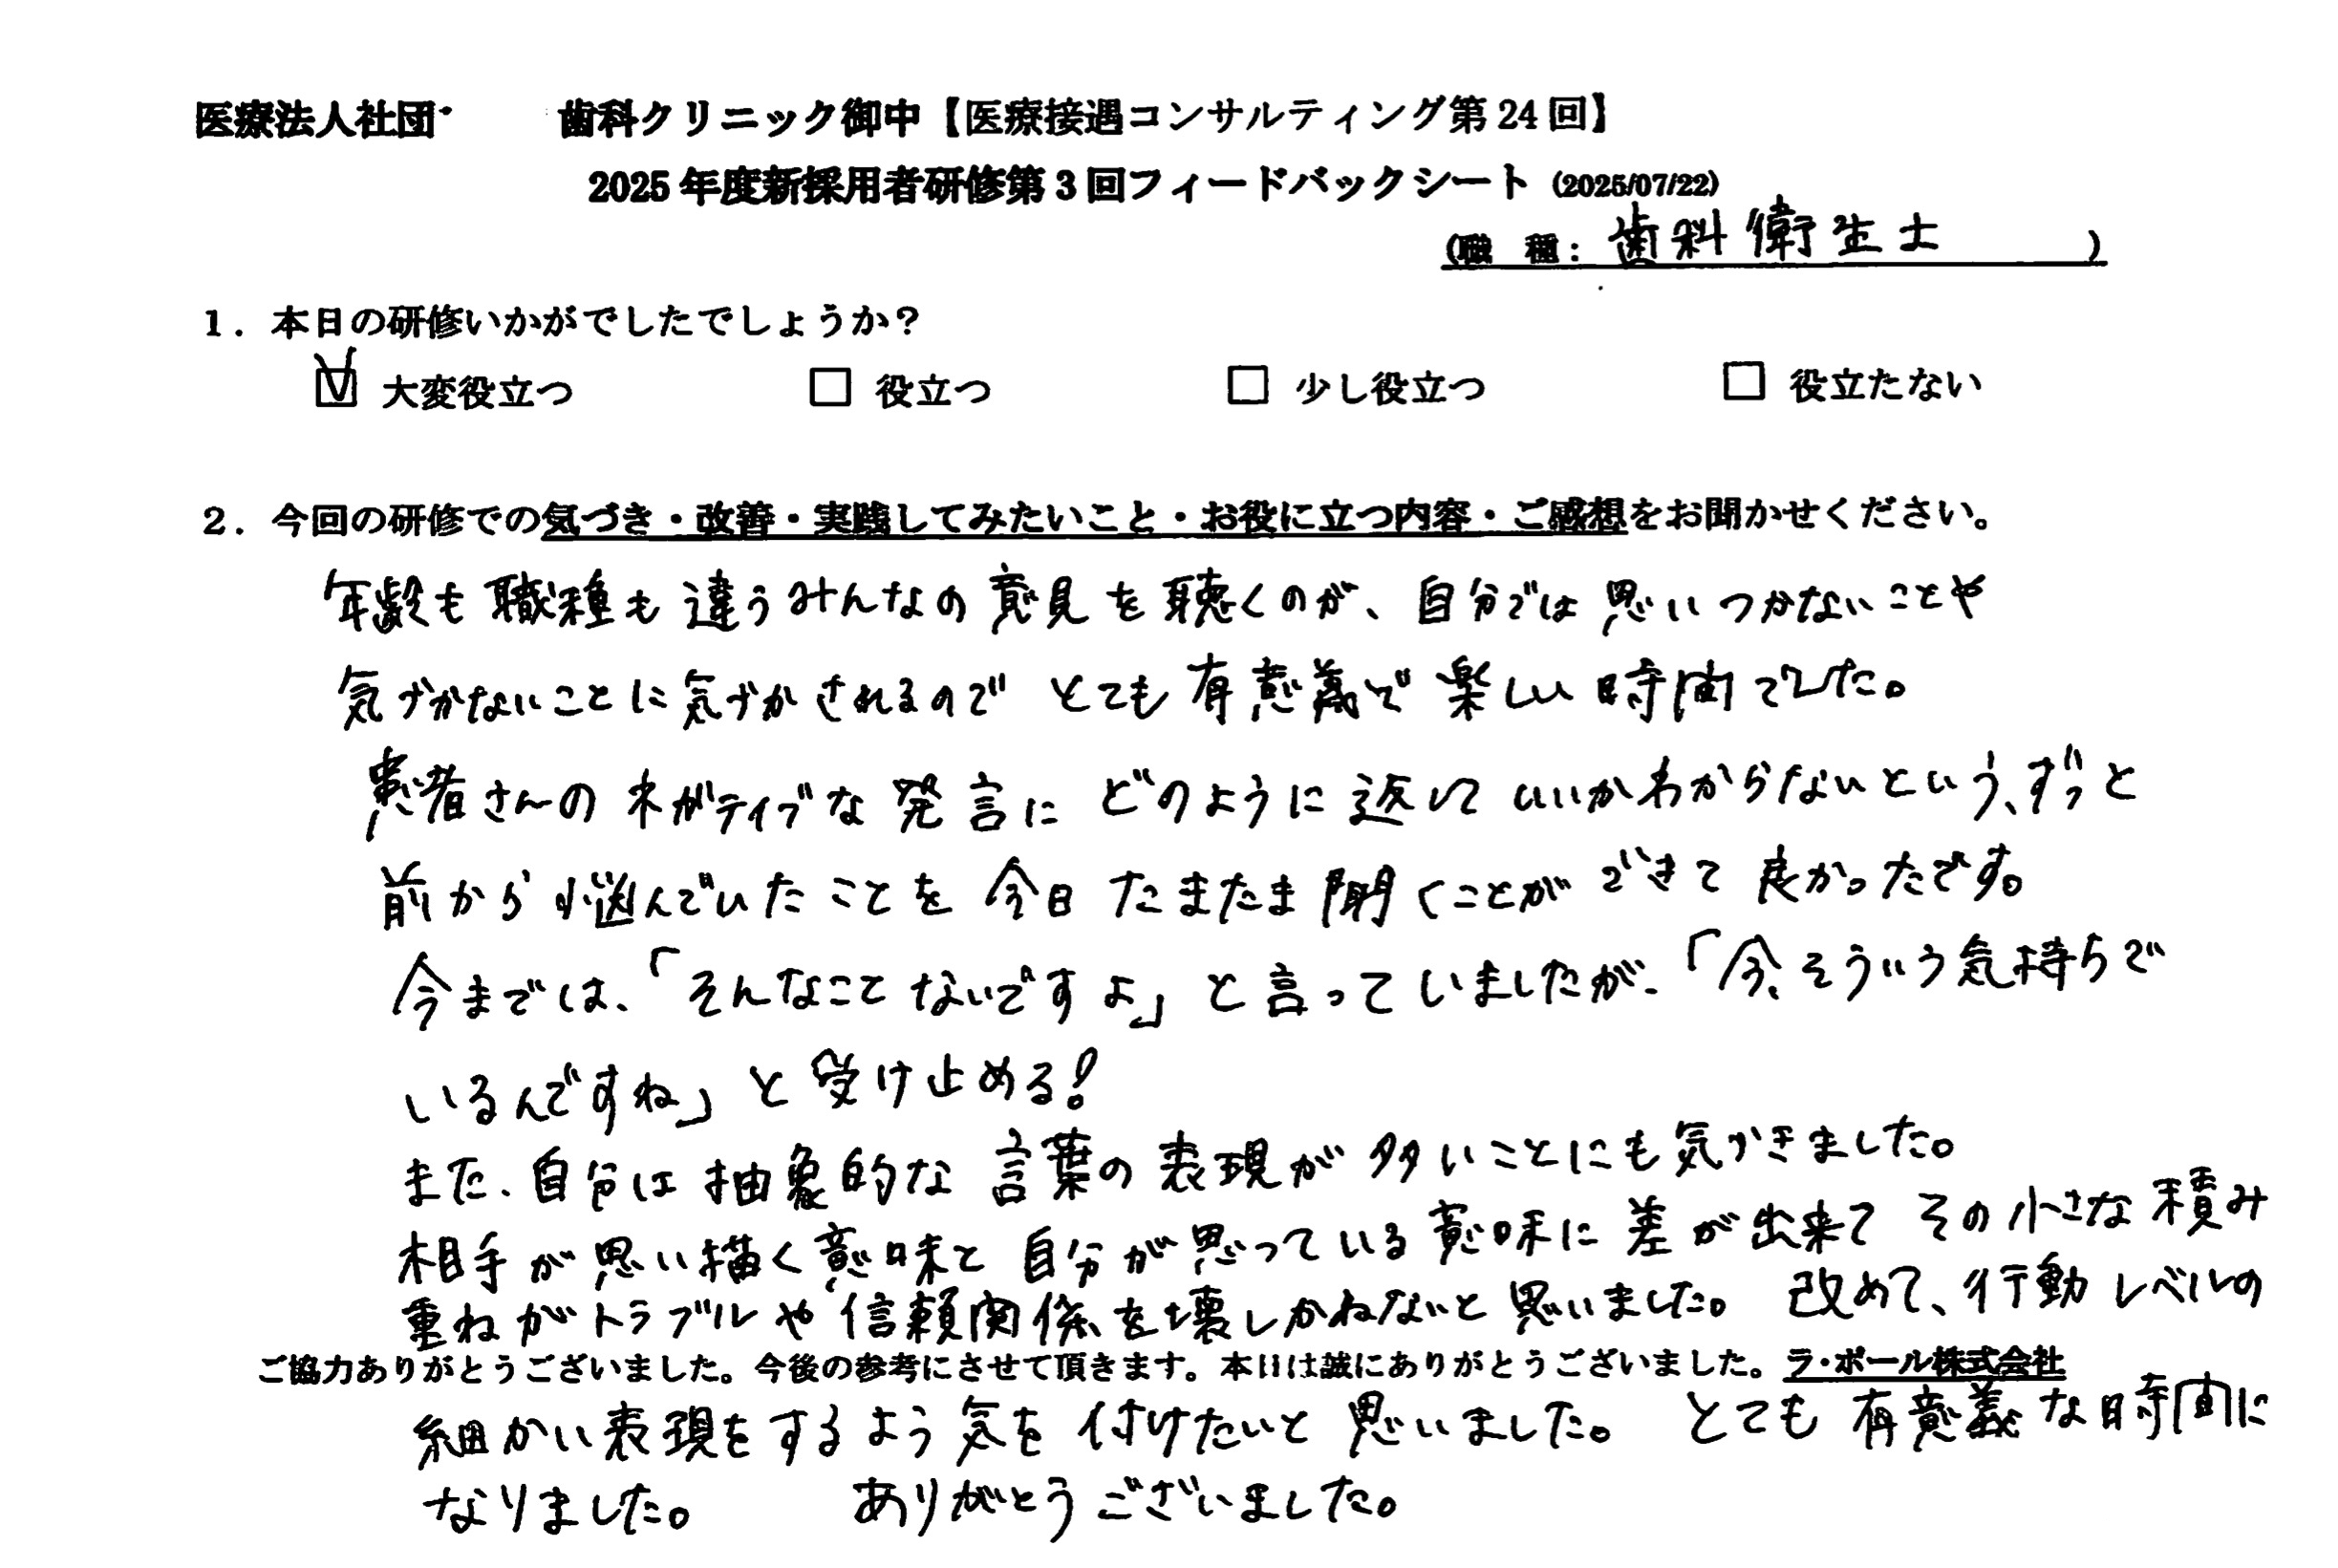 医療法人社団 歯科クリニック御中【医療接遇コンサルティング第24回】
2025年度新採用者研修第3回フィードバックシート (2025/07/22)
(職 種: 歯科衛生士 )
1. 本日の研修いかがでしたでしょうか?
☑ 大変役立つ □ 役立つ □ 少し役立つ □ 役立たない
2. 今回の研修での気づき・改善・実践してみたいこと・お役に立つ内容・ご感想をお聞かせください。
年齢も職種も違うみんなの意見を聴くのが、自分では思いつかないことや
気づかないことに気づかされるので とても有意義で楽しい時間でした。
患者さんのネガティブな発言に どのように返していいかわからないという、ずっと
前から悩んでいたことを今日たまたま聞くことができて良かったです。
今までは、「そんなことないですよ」と言っていましたが、「今、そういう気持ちで
いるんですね」と受け止める!
また、自分は抽象的な言葉の表現が多いことにも気づきました。
相手が思い描く意味と自分が思っている意味に差が出来て その小さな積み
重ねがトラブルや信頼関係を壊しかねないと思いました。 改めて、行動レベルの
ご協力ありがとうございました。今後の参考にさせて頂きます。本日は誠にありがとうございました。ラ・ポール株式会社
細かい表現をするよう気を付けたいと思いました。 とても有意義な時間に
なりました。 ありがとうございました。